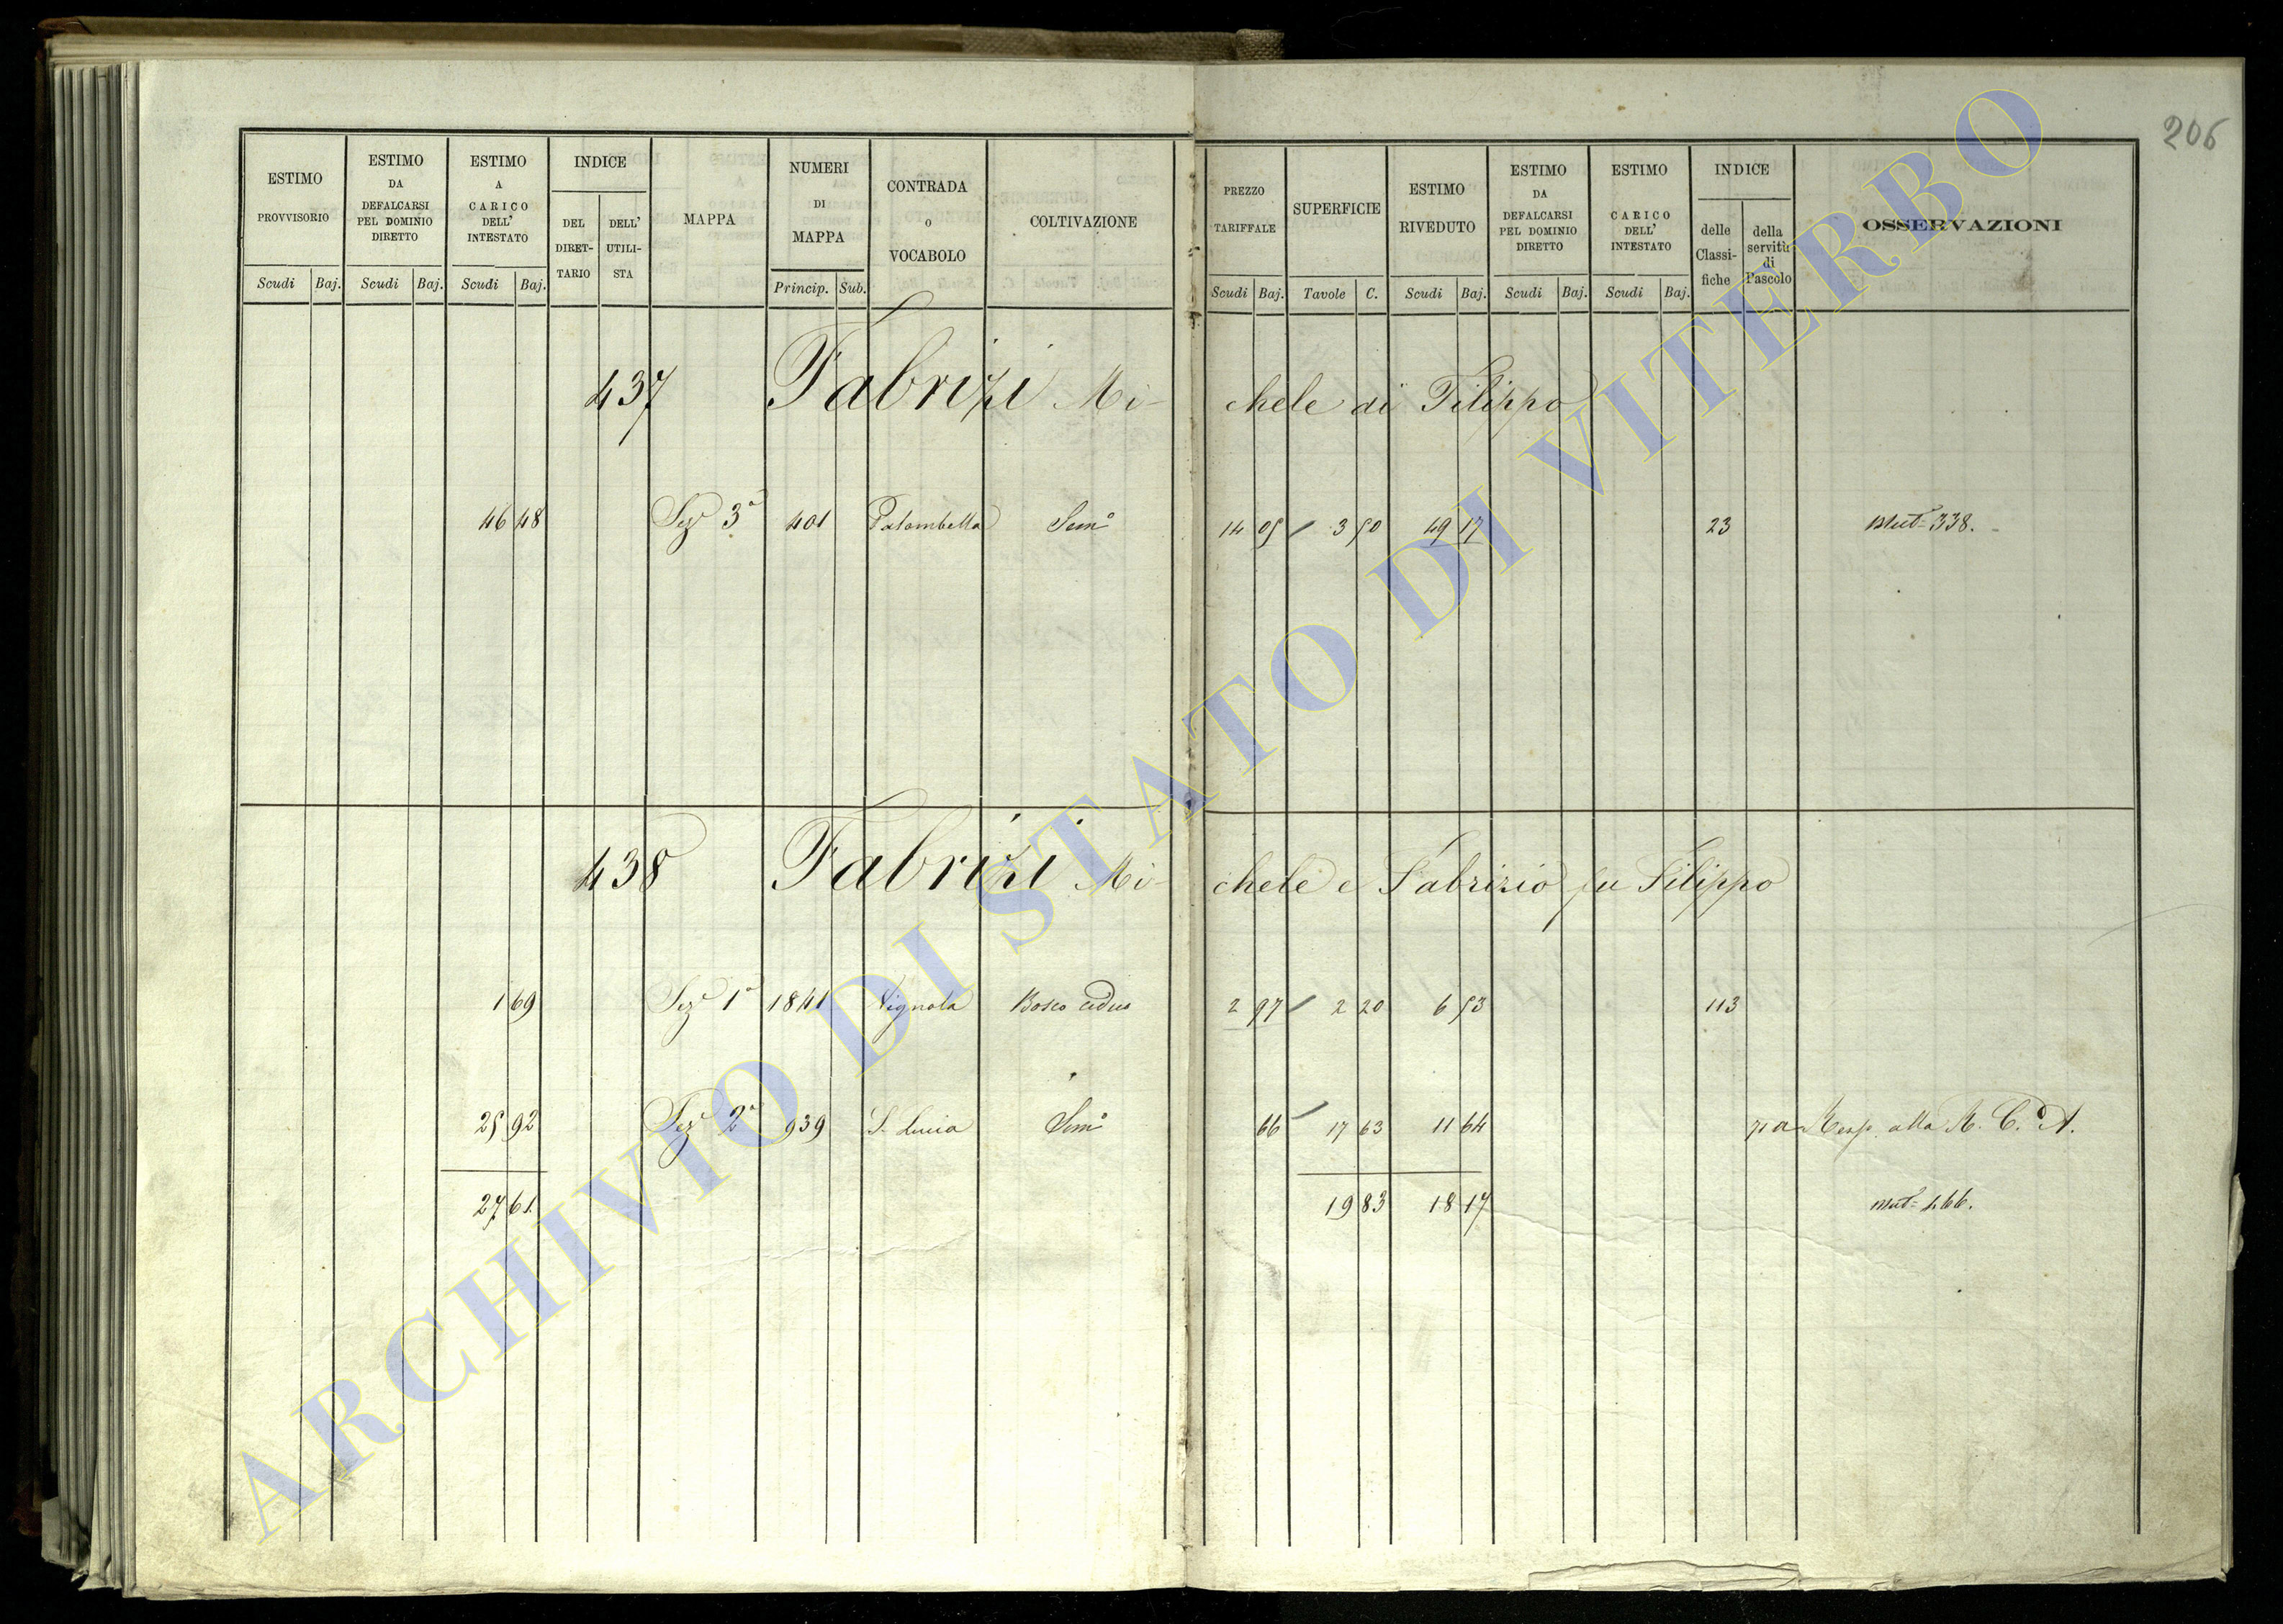 206
ESTIMO PROVVISORIO
ESTIMO DA DEFALCARSI PEL DOMINIO DIRETTO
ESTIMO A CARICO DELL' INTESTATO
INDICE
DEL DIRET- TARIO
DELL' UTILI- STA
MAPPA
NUMERI DI MAPPA
CONTRADA o VOCABOLO
COLTIVAZIONE
PREZZO TARIFFALE
SUPERFICIE
ESTIMO RIVEDUTO
ESTIMO DA DEFALCARSI PEL DOMINIO DIRETTO
ESTIMO CARICO DELL' INTESTATO
INDICE
delle Classi- fiche
della servitù di Pascolo
OSSERVAZIONI
Scudi Baj. Scudi Baj. Scudi Baj. Princip. Sub. Scudi Baj. Tavole C. Scudi Baj. Scudi Baj. Scudi Baj.
437 Fabrizi Mi- chele di Filippo
46 48 Sez^e 3^a 401 Palombella Sem^o 14 05 / 3 50 49 17 23 Mut^e 338.
438 Fabrizi Mi- chele e Fabrizio fu Filippo
1 69 Sez^e 1^a 1841 Vignola Bosco Ceduo 2 97 / 2 20 6 53 113
25 92 Sez^e 2^a 939 S. Lucia Sem^o 66 / 17 63 11 64 Resp. alla R. C. A.
27 61 19 83 18 17 Mut^e 466.
ARCHIVIO DI STATO DI VITERBO